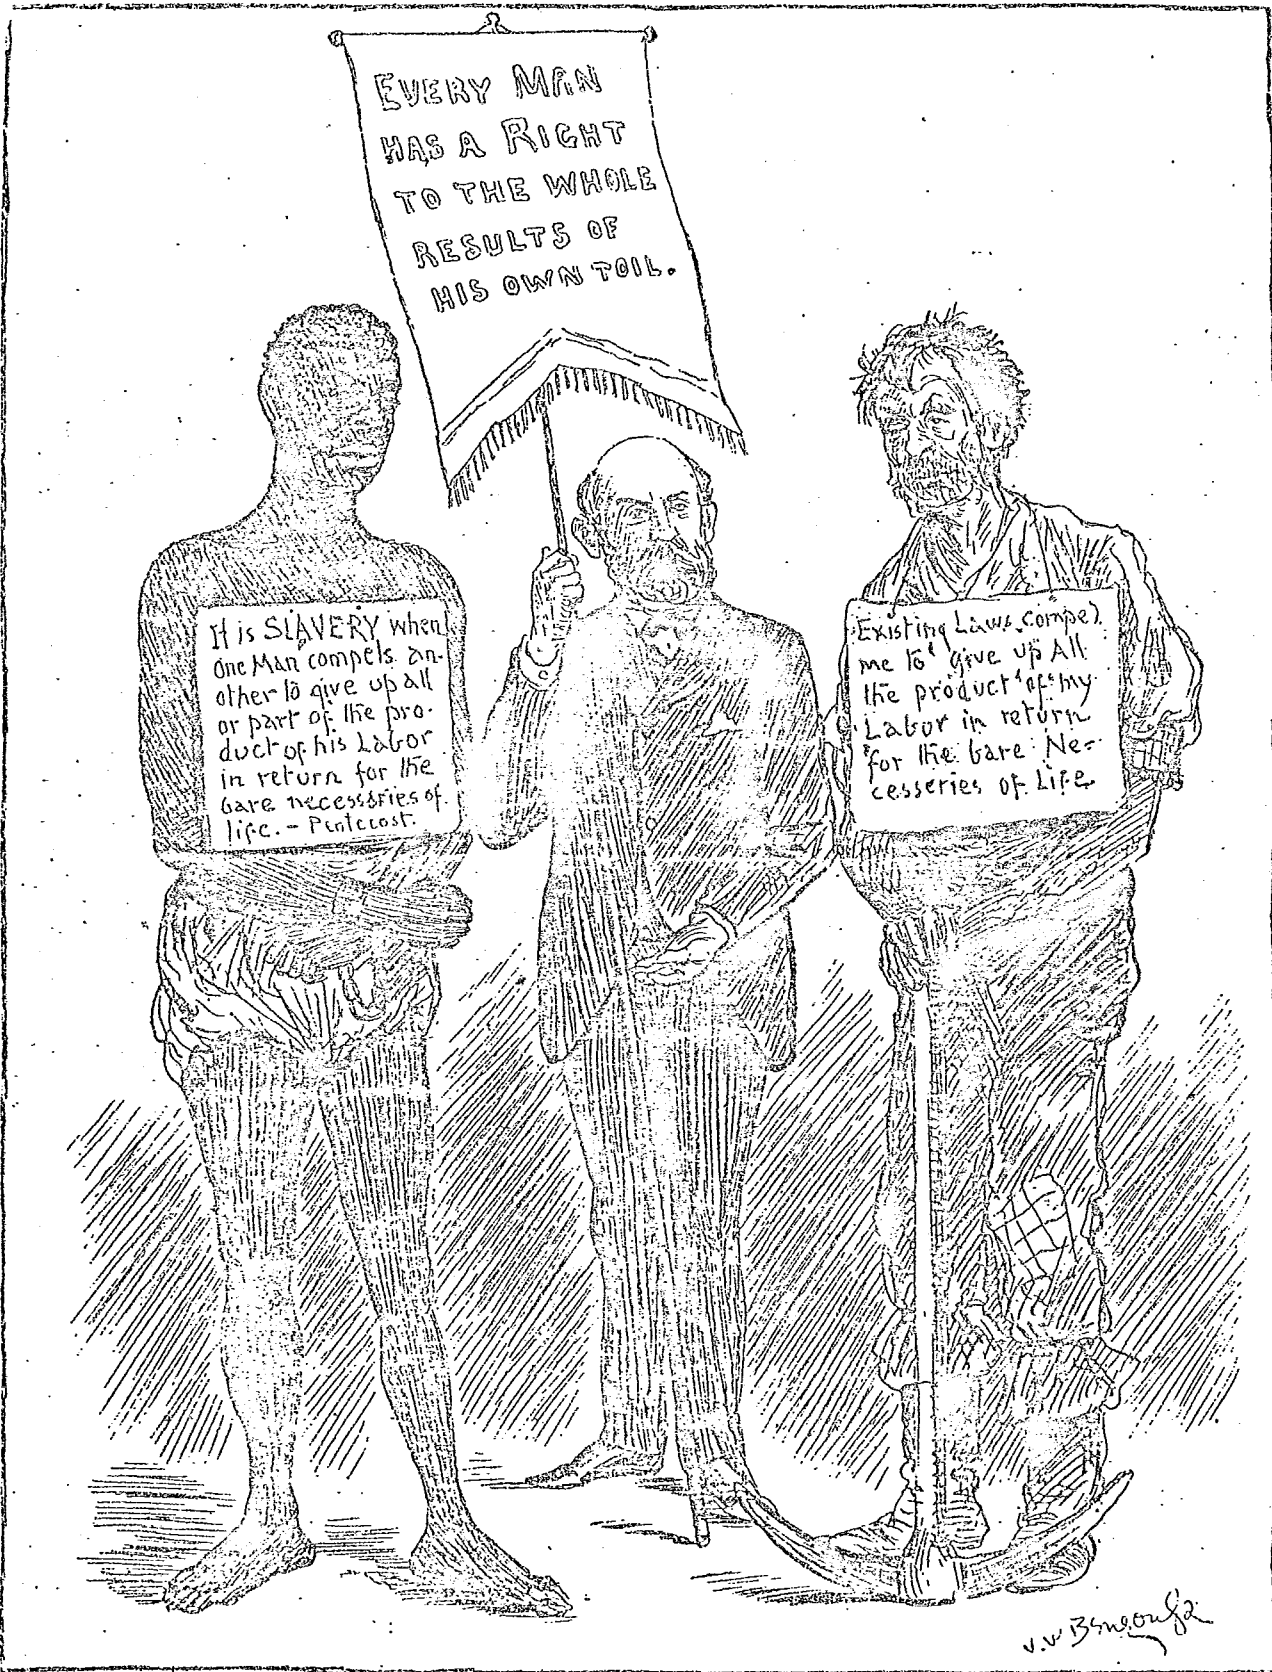 EVERY MAN
HAS A RIGHT
TO THE WHOLE
RESULTS OF
HIS OWN TOIL.
It is SLAVERY when
One Man compels an-
other to give up all
or part of the pro-
duct of his Labor
in return for the
bare necessaries of
life. - Pentecost.
Existing Laws compel
me to give up All
the product of my
Labor in return
for the bare Ne-
cesseries of Life